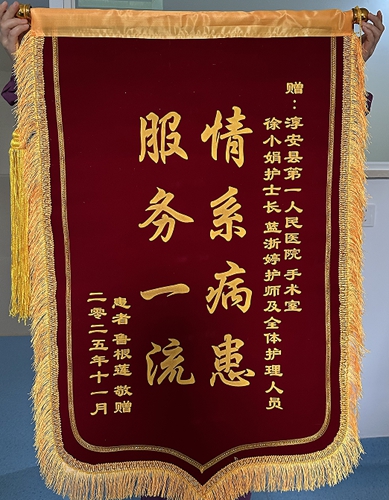 赠：淳安县第一人民医院 手术室
徐小娟护士长 蓝浙婷护师及全体护理人员
情系病患
服务一流
患者 鲁根莲 敬赠
二零二五年十一月